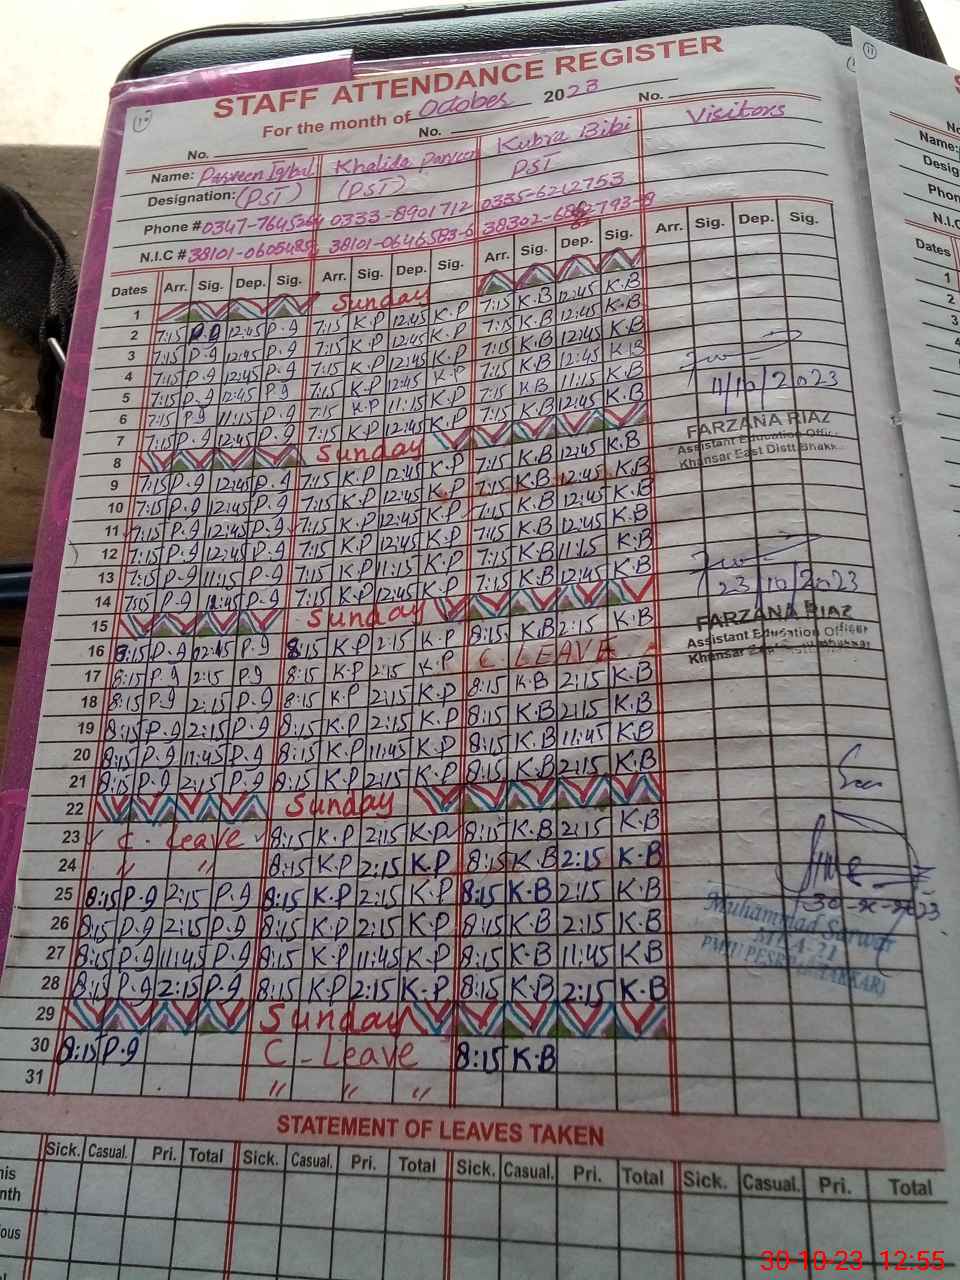 STAFF ATTENDANCE REGISTER
For the month of October 2023
No. No. No.
Name: Parveen Iqbal Khalida Parveen Kubra Bibi Visitors
Designation: (PST) (PST) PST
Phone # 0333-8901712 0335-6212753
N.I.C # 38101-0646583-6
Dates Arr. Sig. Dep. Sig. Arr. Sig. Dep. Sig. Arr. Sig. Dep. Sig. Arr. Sig. Dep. Sig.
1 Sunday 7:15 K.B 12:45 K.B
2 7:15 P.I 12:45 P.I 7:15 K.P 12:45 K.P 7:15 K.B 12:45 K.B
3 7:15 P.I 12:45 P.I 7:15 K.P 12:45 K.P 7:15 K.B 12:45 K.B
4 7:15 P.I 12:45 P.I 7:15 K.P 12:45 K.P 7:15 K.B 12:45 K.B
5 7:15 P.I 12:45 P.I 7:15 K.P 12:45 K.P 7:15 K.B 11:15 K.B
6 7:15 P.I 11:15 P.I 7:15 K.P 11:15 K.P 7:15 K.B 12:45 K.B
7 7:15 P.I 12:45 P.I 7:15 K.P 12:45 K.P
8 Sunday 7:15 K.B 12:45 K.B
9 7:15 P.I 12:45 P.I 7:15 K.P 12:45 K.P 7:15 K.B 12:45 K.B
10 7:15 P.I 12:45 P.I 7:15 K.P 12:45 K.P 7:15 K.B 12:45 K.B
11 7:15 P.I 12:45 P.I 7:15 K.P 12:45 K.P 7:15 K.B 12:45 K.B
12 7:15 P.I 12:45 P.I 7:15 K.P 12:45 K.P 7:15 K.B 11:15 K.B
13 7:15 P.I 11:15 P.I 7:15 K.P 11:15 K.P 7:15 K.B 12:45 K.B
14 7:15 P.I 12:45 P.I 7:15 K.P 12:45 K.P
15 Sunday 8:15 K.B 2:15 K.B
16 8:15 P.I 02:45 P.I 8:15 K.P 2:15 K.P C. LEAVE
17 8:15 P.I 2:15 P.I 8:15 K.P 2:15 K.P 8:15 K.B 2:15 K.B
18 8:15 P.I 2:15 P.I 8:15 K.P 2:15 K.P 8:15 K.B 2:15 K.B
19 8:15 P.I 2:15 P.I 8:15 K.P 2:15 K.P 8:15 K.B 11:45 K.B
20 8:15 P.I 11:45 P.I 8:15 K.P 11:45 K.P 8:15 K.B 2:15 K.B
21 8:15 P.I 2:15 P.I 8:15 K.P 2:15 K.P
22 Sunday
23 C. Leave 8:15 K.P 2:15 K.P 8:15 K.B 2:15 K.B
24 〃 〃 8:15 K.P 2:15 K.P 8:15 K.B 2:15 K.B
25 8:15 P.I 2:15 P.I 8:15 K.P 2:15 K.P 8:15 K.B 2:15 K.B
26 8:15 P.I 2:15 P.I 8:15 K.P 2:15 K.P 8:15 K.B 2:15 K.B
27 8:15 P.I 11:45 P.I 8:15 K.P 11:45 K.P 8:15 K.B 11:45 K.B
28 8:15 P.I 2:15 P.I 8:15 K.P 2:15 K.P 8:15 K.B 2:15 K.B
29 Sunday
30 8:15 P.I C-Leave 8:15 K.B
31 〃 〃 〃
4/10/2023
FARZANA RIAZ
Assistant Education Officer
Khansar East Distt Bhakk
23/10/2023
FARZANA RIAZ
Assistant Education Officer
Khansar East Distt Bhakkar
Muhammad Sarwar
MEA-21
STATEMENT OF LEAVES TAKEN
Sick. Casual. Pri. Total Sick. Casual. Pri. Total Sick. Casual. Pri. Total Sick. Casual. Pri. Total
his
nth
ious
11
Name:
Desig
Phon
N.I.C
Dates
1
2
3
4
5
6
7
8
9
10
11
12
13
14
15
16
17
18
19
20
21
22
23
24
25
26
27
28
29
30
31
30-10-23 12:55